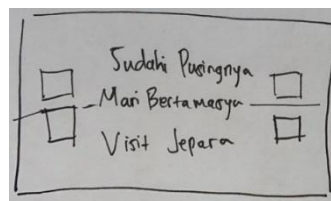 Sudahi Pusingnya
Mari Bertamasya
Visit Jepara